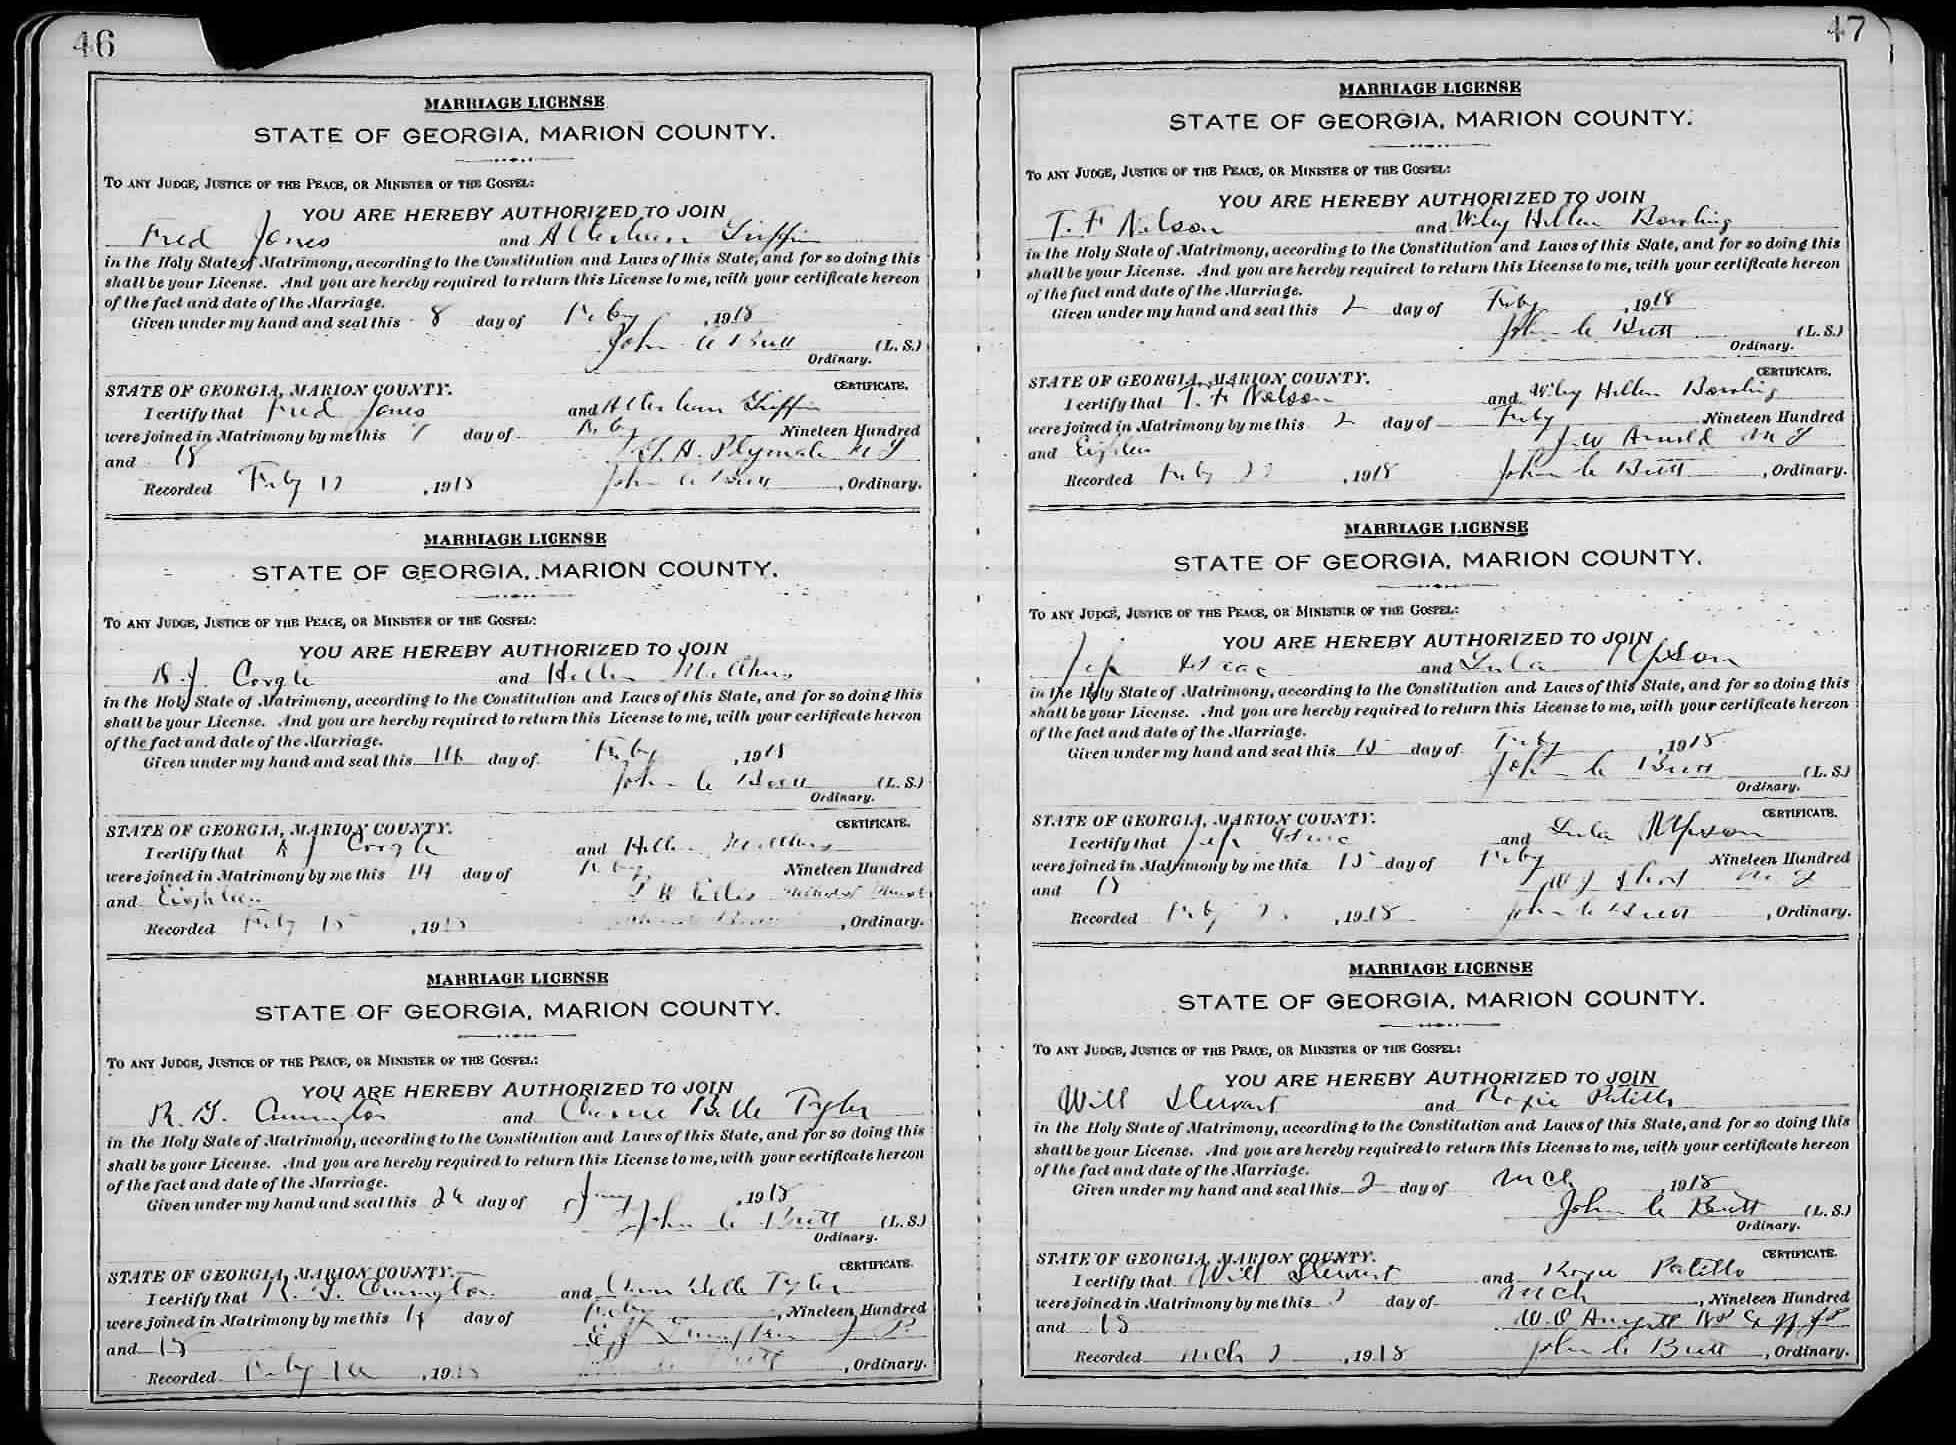 46
MARRIAGE LICENSE
STATE OF GEORGIA, MARION COUNTY.
TO ANY JUDGE, JUSTICE OF THE PEACE, OR MINISTER OF THE GOSPEL:
YOU ARE HEREBY AUTHORIZED TO JOIN
Fred Jones and Griffin
in the Holy State of Matrimony, according to the Constitution and Laws of this State, and for so doing this
shall be your License. And you are hereby required to return this License to me, with your certificate hereon
of the fact and date of the Marriage.
Given under my hand and seal this 8 day of Feby, 1918
John C Butt (L. S.)
Ordinary.
CERTIFICATE.
STATE OF GEORGIA, MARION COUNTY.
I certify that Fred Jones and Griffin
were joined in Matrimony by me this day of Feby Nineteen Hundred
and 18
Recorded Feby, 1918 John C Butt, Ordinary.
MARRIAGE LICENSE
STATE OF GEORGIA, MARION COUNTY.
TO ANY JUDGE, JUSTICE OF THE PEACE, OR MINISTER OF THE GOSPEL:
YOU ARE HEREBY AUTHORIZED TO JOIN
and
in the Holy State of Matrimony, according to the Constitution and Laws of this State, and for so doing this
shall be your License. And you are hereby required to return this License to me, with your certificate hereon
of the fact and date of the Marriage.
Given under my hand and seal this 14 day of Feby, 1918
John C Butt (L. S.)
Ordinary.
CERTIFICATE.
STATE OF GEORGIA, MARION COUNTY.
I certify that and
were joined in Matrimony by me this 14 day of Feby Nineteen Hundred
and Eighteen
Recorded Feby 15, 1918, Ordinary.
MARRIAGE LICENSE
STATE OF GEORGIA, MARION COUNTY.
TO ANY JUDGE, JUSTICE OF THE PEACE, OR MINISTER OF THE GOSPEL:
YOU ARE HEREBY AUTHORIZED TO JOIN
and Belle Tyler
in the Holy State of Matrimony, according to the Constitution and Laws of this State, and for so doing this
shall be your License. And you are hereby required to return this License to me, with your certificate hereon
of the fact and date of the Marriage.
Given under my hand and seal this day of, 1918
John C Butt (L. S.)
Ordinary.
CERTIFICATE.
STATE OF GEORGIA, MARION COUNTY.
I certify that and Belle Tyler
were joined in Matrimony by me this day of Feby, Nineteen Hundred
and 18
Recorded Feby, 1918, Ordinary.
47
MARRIAGE LICENSE
STATE OF GEORGIA, MARION COUNTY.
TO ANY JUDGE, JUSTICE OF THE PEACE, OR MINISTER OF THE GOSPEL:
YOU ARE HEREBY AUTHORIZED TO JOIN
T. F Nelson and Wiley Hellen Bowling
in the Holy State of Matrimony, according to the Constitution and Laws of this State, and for so doing this
shall be your License. And you are hereby required to return this License to me, with your certificate hereon
of the fact and date of the Marriage.
Given under my hand and seal this 2 day of Feby, 1918
John C Butt (L. S.)
Ordinary.
CERTIFICATE.
STATE OF GEORGIA, MARION COUNTY.
I certify that T. F Nelson and Wiley Hellen Bowling
were joined in Matrimony by me this 2 day of Feby Nineteen Hundred
and J. W Arnold M G
Recorded Feby, 1918 John C Butt, Ordinary.
MARRIAGE LICENSE
STATE OF GEORGIA, MARION COUNTY.
TO ANY JUDGE, JUSTICE OF THE PEACE, OR MINISTER OF THE GOSPEL:
YOU ARE HEREBY AUTHORIZED TO JOIN
and Lula
in the Holy State of Matrimony, according to the Constitution and Laws of this State, and for so doing this
shall be your License. And you are hereby required to return this License to me, with your certificate hereon
of the fact and date of the Marriage.
Given under my hand and seal this 15 day of Feby, 1918
John C Butt (L. S.)
Ordinary.
CERTIFICATE.
STATE OF GEORGIA, MARION COUNTY.
I certify that and Lula
were joined in Matrimony by me this 15 day of Feby Nineteen Hundred
and 18
Recorded Feby, 1918 John C Butt, Ordinary.
MARRIAGE LICENSE
STATE OF GEORGIA, MARION COUNTY.
TO ANY JUDGE, JUSTICE OF THE PEACE, OR MINISTER OF THE GOSPEL:
YOU ARE HEREBY AUTHORIZED TO JOIN
Will Stewart and Roxie Patillo
in the Holy State of Matrimony, according to the Constitution and Laws of this State, and for so doing this
shall be your License. And you are hereby required to return this License to me, with your certificate hereon
of the fact and date of the Marriage.
Given under my hand and seal this 2 day of Mch, 1918
John C Butt (L. S.)
Ordinary.
CERTIFICATE.
STATE OF GEORGIA, MARION COUNTY.
I certify that Will Stewart and Roxie Patillo
were joined in Matrimony by me this day of Mch, Nineteen Hundred
and 18
Recorded Mch, 1918 John C Butt, Ordinary.